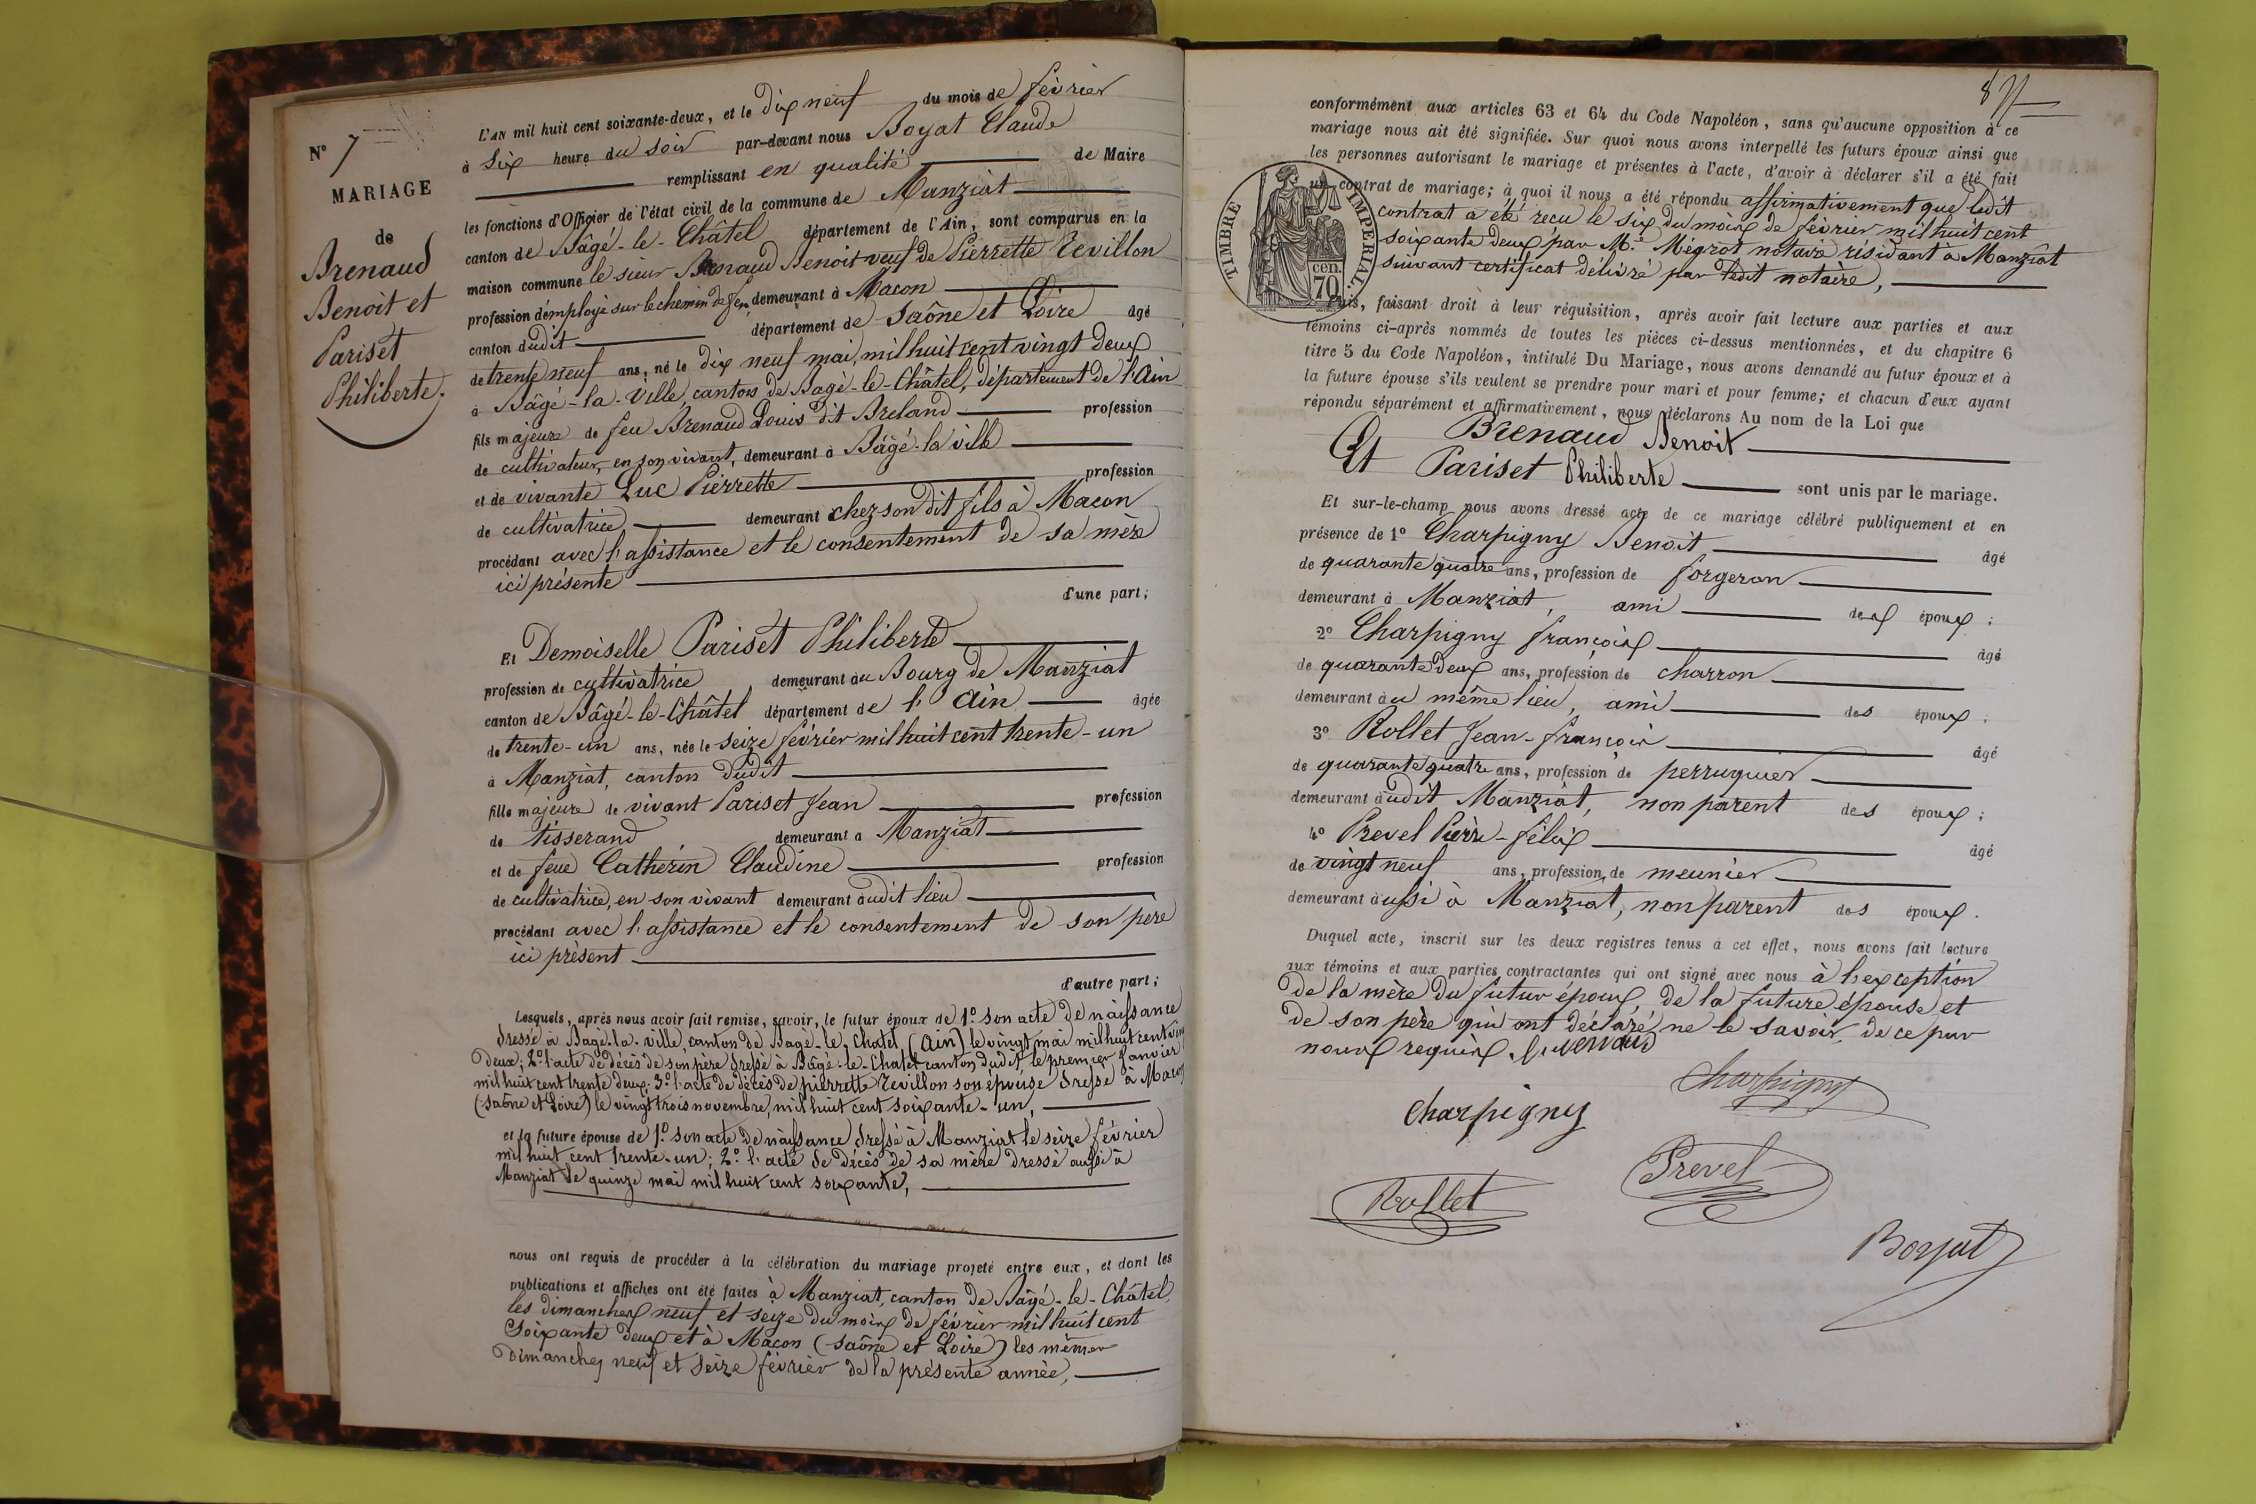 N° 7
MARIAGE
de
Brenaud
Benoit et
Pariset
Philiberte.
L'AN mil huit cent soixante-deux, et le dix neuf du mois de février
à six heure du soir par-devant nous Boyat Claude
remplissant en qualité de Maire
les fonctions d'Officier de l'état civil de la commune de Manziat
canton de Bâgé-le-Châtel département de l'Ain, sont comparus en la
maison commune le sieur Brenaud Benoit veuf de Pierrette Revillon
profession d'employé sur le chemin de fer, demeurant à Macon
canton dudit département de Saône et Loire âgé
de trente neuf ans, né le dix neuf mai, mil huit cent vingt deux
à Bâgé-la-Ville, canton de Bagé-le-Châtel, département de l'Ain
fils majeure de feu Brenaud Louis dit Breland profession
de cultivateur, en son vivant, demeurant à Bâgé-la ville
et de vivante Luc Pierrette profession
de cultivatrice, demeurant chez son dit fils à Macon
procédant avec l'assistance et le consentement de sa mère
ici présente
d'une part;
Et Demoiselle Pariset Philiberte
profession de cultivatrice demeurant au Bourg de Manziat
canton de Bâgé-le-Châtel département de l'Ain âgée
de trente-un ans, née le seize février mil huit cent trente-un
à Manziat, canton dudit
fille majeure de vivant Pariset Jean profession
de tisserand demeurant a Manziat
et de feue Catherin Claudine profession
de cultivatrice, en son vivant demeurant audit lieu
procédant avec l'assistance et le consentement de son père
ici présent
d'autre part;
Lesquels, après nous avoir fait remise, savoir, le futur époux de 1° son acte de naissance
dressé à Bagé-la-ville, canton de Bagé-le-Chatel (Ain) le vingt mai mil huit cent vingt
deux; 2° l'acte de décès de son père dressé à Bâgé-le-Chatel canton dudit, le premier janvier
mil huit cent trente deux; 3° l'acte de décès de pierrette Revillon son épouse dressé à Macon
(Saône et Loire) le vingt trois novembre, mil huit cent soixante-un,
et la future épouse de 1° son acte de naissance dressé à Manziat le seize février
mil huit cent trente-un; 2° l'acte de décès de sa mère dressé aussi à
Manziat le quinze mai mil huit cent soixante,
nous ont requis de procéder à la célébration du mariage projeté entre eux, et dont les
publications et affiches ont été faites à Manziat, canton de Bâgé-le-Châtel,
les dimanches neuf et seize du mois de février mil huit cent
soixante deux et à Macon (Saône et Loire) les mêmes
dimanches neuf et seize février de la présente année,
conformément aux articles 63 et 64 du Code Napoléon, sans qu'aucune opposition à ce
mariage nous ait été signifiée. Sur quoi nous avons interpellé les futurs époux ainsi que
les personnes autorisant le mariage et présentes à l'acte, d'avoir à déclarer s'il a été fait
un contrat de mariage; à quoi il nous a été répondu affirmativement que ledit
contrat a été reçu le six du mois de février mil huit cent
soixante deux par Me Mégrot notaire résidant à Manziat
suivant certificat délivré par ledit notaire,
TIMBRE IMPERIAL
cen.
70
Puis, faisant droit à leur réquisition, après avoir fait lecture aux parties et aux
témoins ci-après nommés de toutes les pièces ci-dessus mentionnées, et du chapitre 6
titre 5 du Code Napoléon, intitulé Du Mariage, nous avons demandé au futur époux et à
la future épouse s'ils veulent se prendre pour mari et pour femme; et chacun d'eux ayant
répondu séparément et affirmativement, nous déclarons Au nom de la Loi que
Brenaud Benoit
Et Pariset Philiberte sont unis par le mariage.
Et sur-le-champ nous avons dressé acte de ce mariage célébré publiquement et en
présence de 1° Charpigny Benoit âgé
de quarante quatre ans, profession de forgeron
demeurant à Manziat, ami des époux;
2° Charpigny françois âgé
de quarante deux ans, profession de charron
demeurant au même lieu, ami des époux;
3° Rollet Jean-françois âgé
de quarante quatre ans, profession de perruquier
demeurant audit Manziat, non parent des époux;
4° Prevel Pierre-félix âgé
de vingt neuf ans, profession de meunier
demeurant aussi à Manziat, non parent des époux.
Duquel acte, inscrit sur les deux registres tenus à cet effet, nous avons fait lecture
aux témoins et aux parties contractantes qui ont signé avec nous à l'exception
de la mère du futur époux, de la future épouse et
de son père qui ont déclaré ne le savoir, de ce par
nous requis.
Charpigny
Charpigny
Prevel
Rollet
Boyat